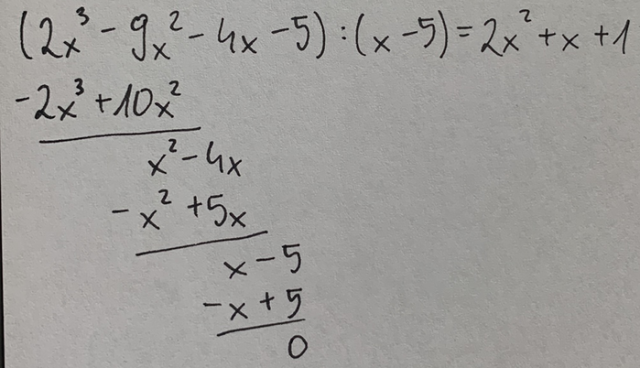 (2x³ - 9x² - 4x - 5) : (x - 5) = 2x² + x + 1
-2x³ + 10x²
x² - 4x
-x² + 5x
x - 5
-x + 5
0